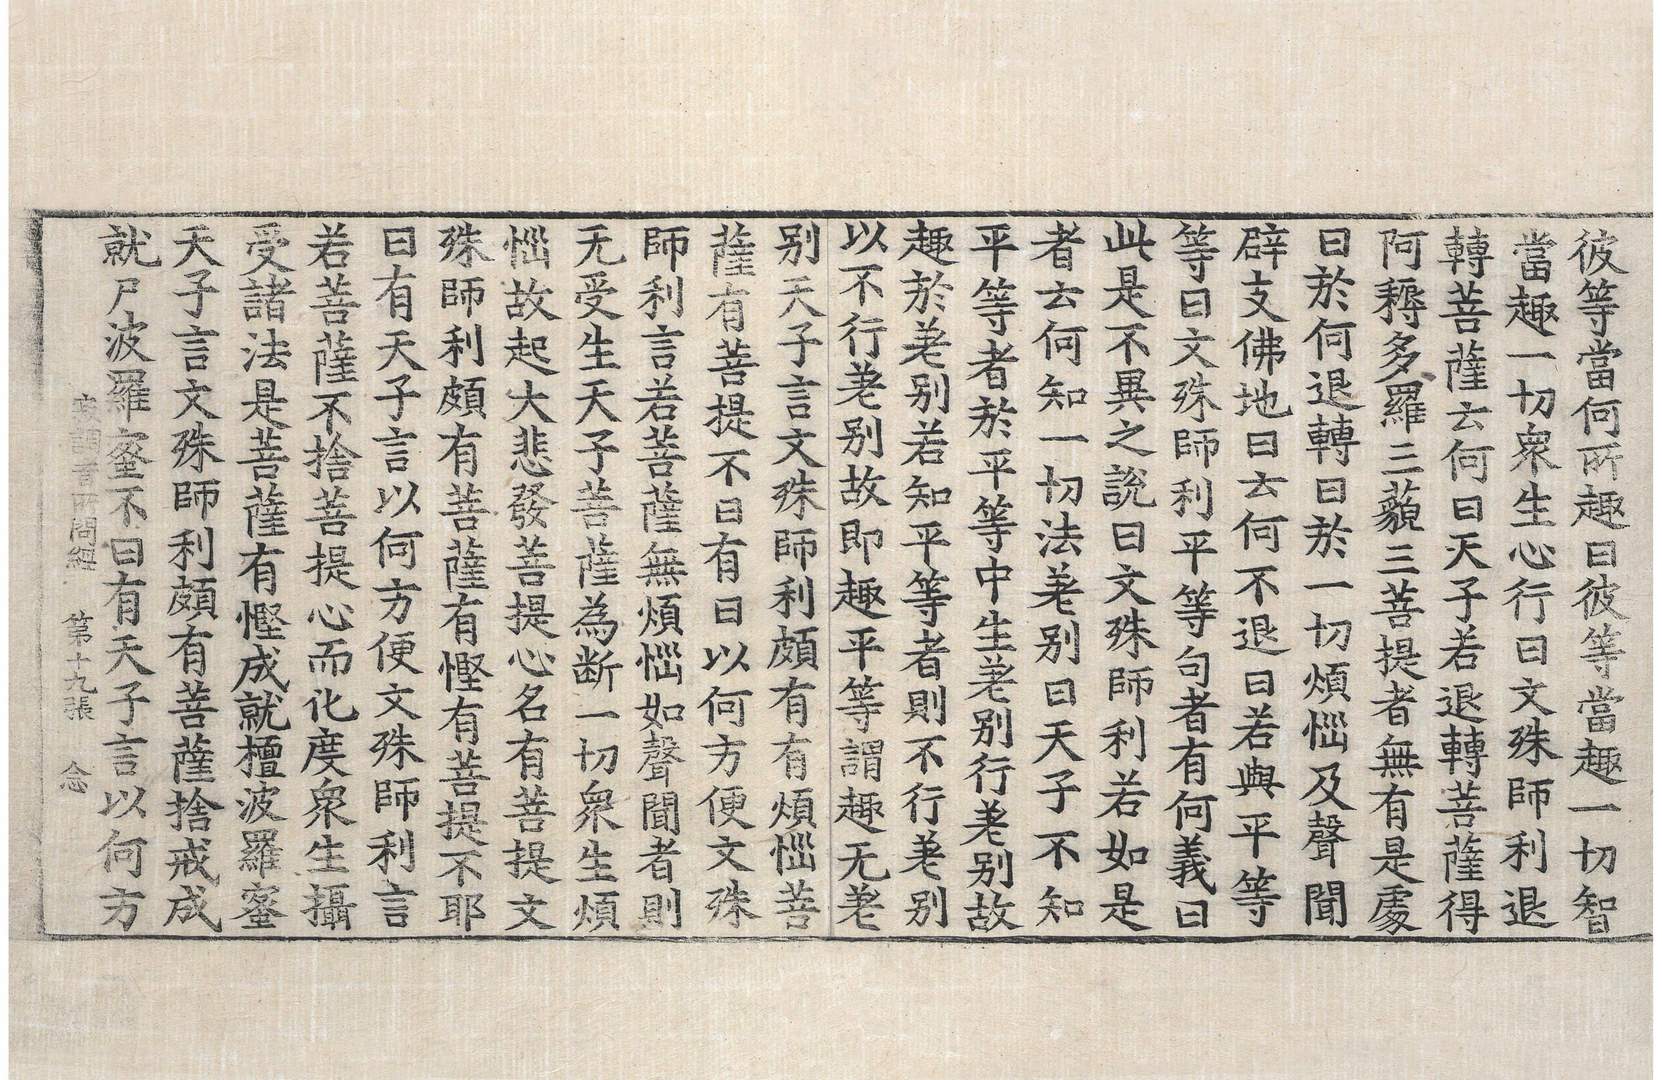 彼等當何所趣曰彼等當趣一切智
當趣一切衆生心行曰文殊師利退
轉菩薩云何曰天子若退轉菩薩得
阿耨多羅三藐三菩提者無有是處
曰於何退轉曰於一切煩惱及聲聞
辟支佛地曰云何不退曰若與平等
等曰文殊師利平等句者有何義曰
此是不異之說曰文殊師利若如是
者云何知一切法差別曰天子不知
平等者於平等中生差別行差別故
趣於差別若知平等者則不行差別
以不行差別故即趣平等謂趣无差
别天子言文殊師利頗有有煩惱菩
薩有菩提不曰有曰以何方便文殊
師利言若菩薩無煩惱如聲聞者則
无受生天子菩薩為断一切衆生煩
惱故起大悲發菩提心名有菩提文
殊師利頗有菩薩有慳有菩提不耶
曰有天子言以何方便文殊師利言
若菩薩不捨菩提心而化度衆生攝
受諸法是菩薩有慳成就檀波羅蜜
天子言文殊師利頗有菩薩捨戒成
就尸波羅蜜不曰有天子言以何方
寂調音所問經 第十九張 念